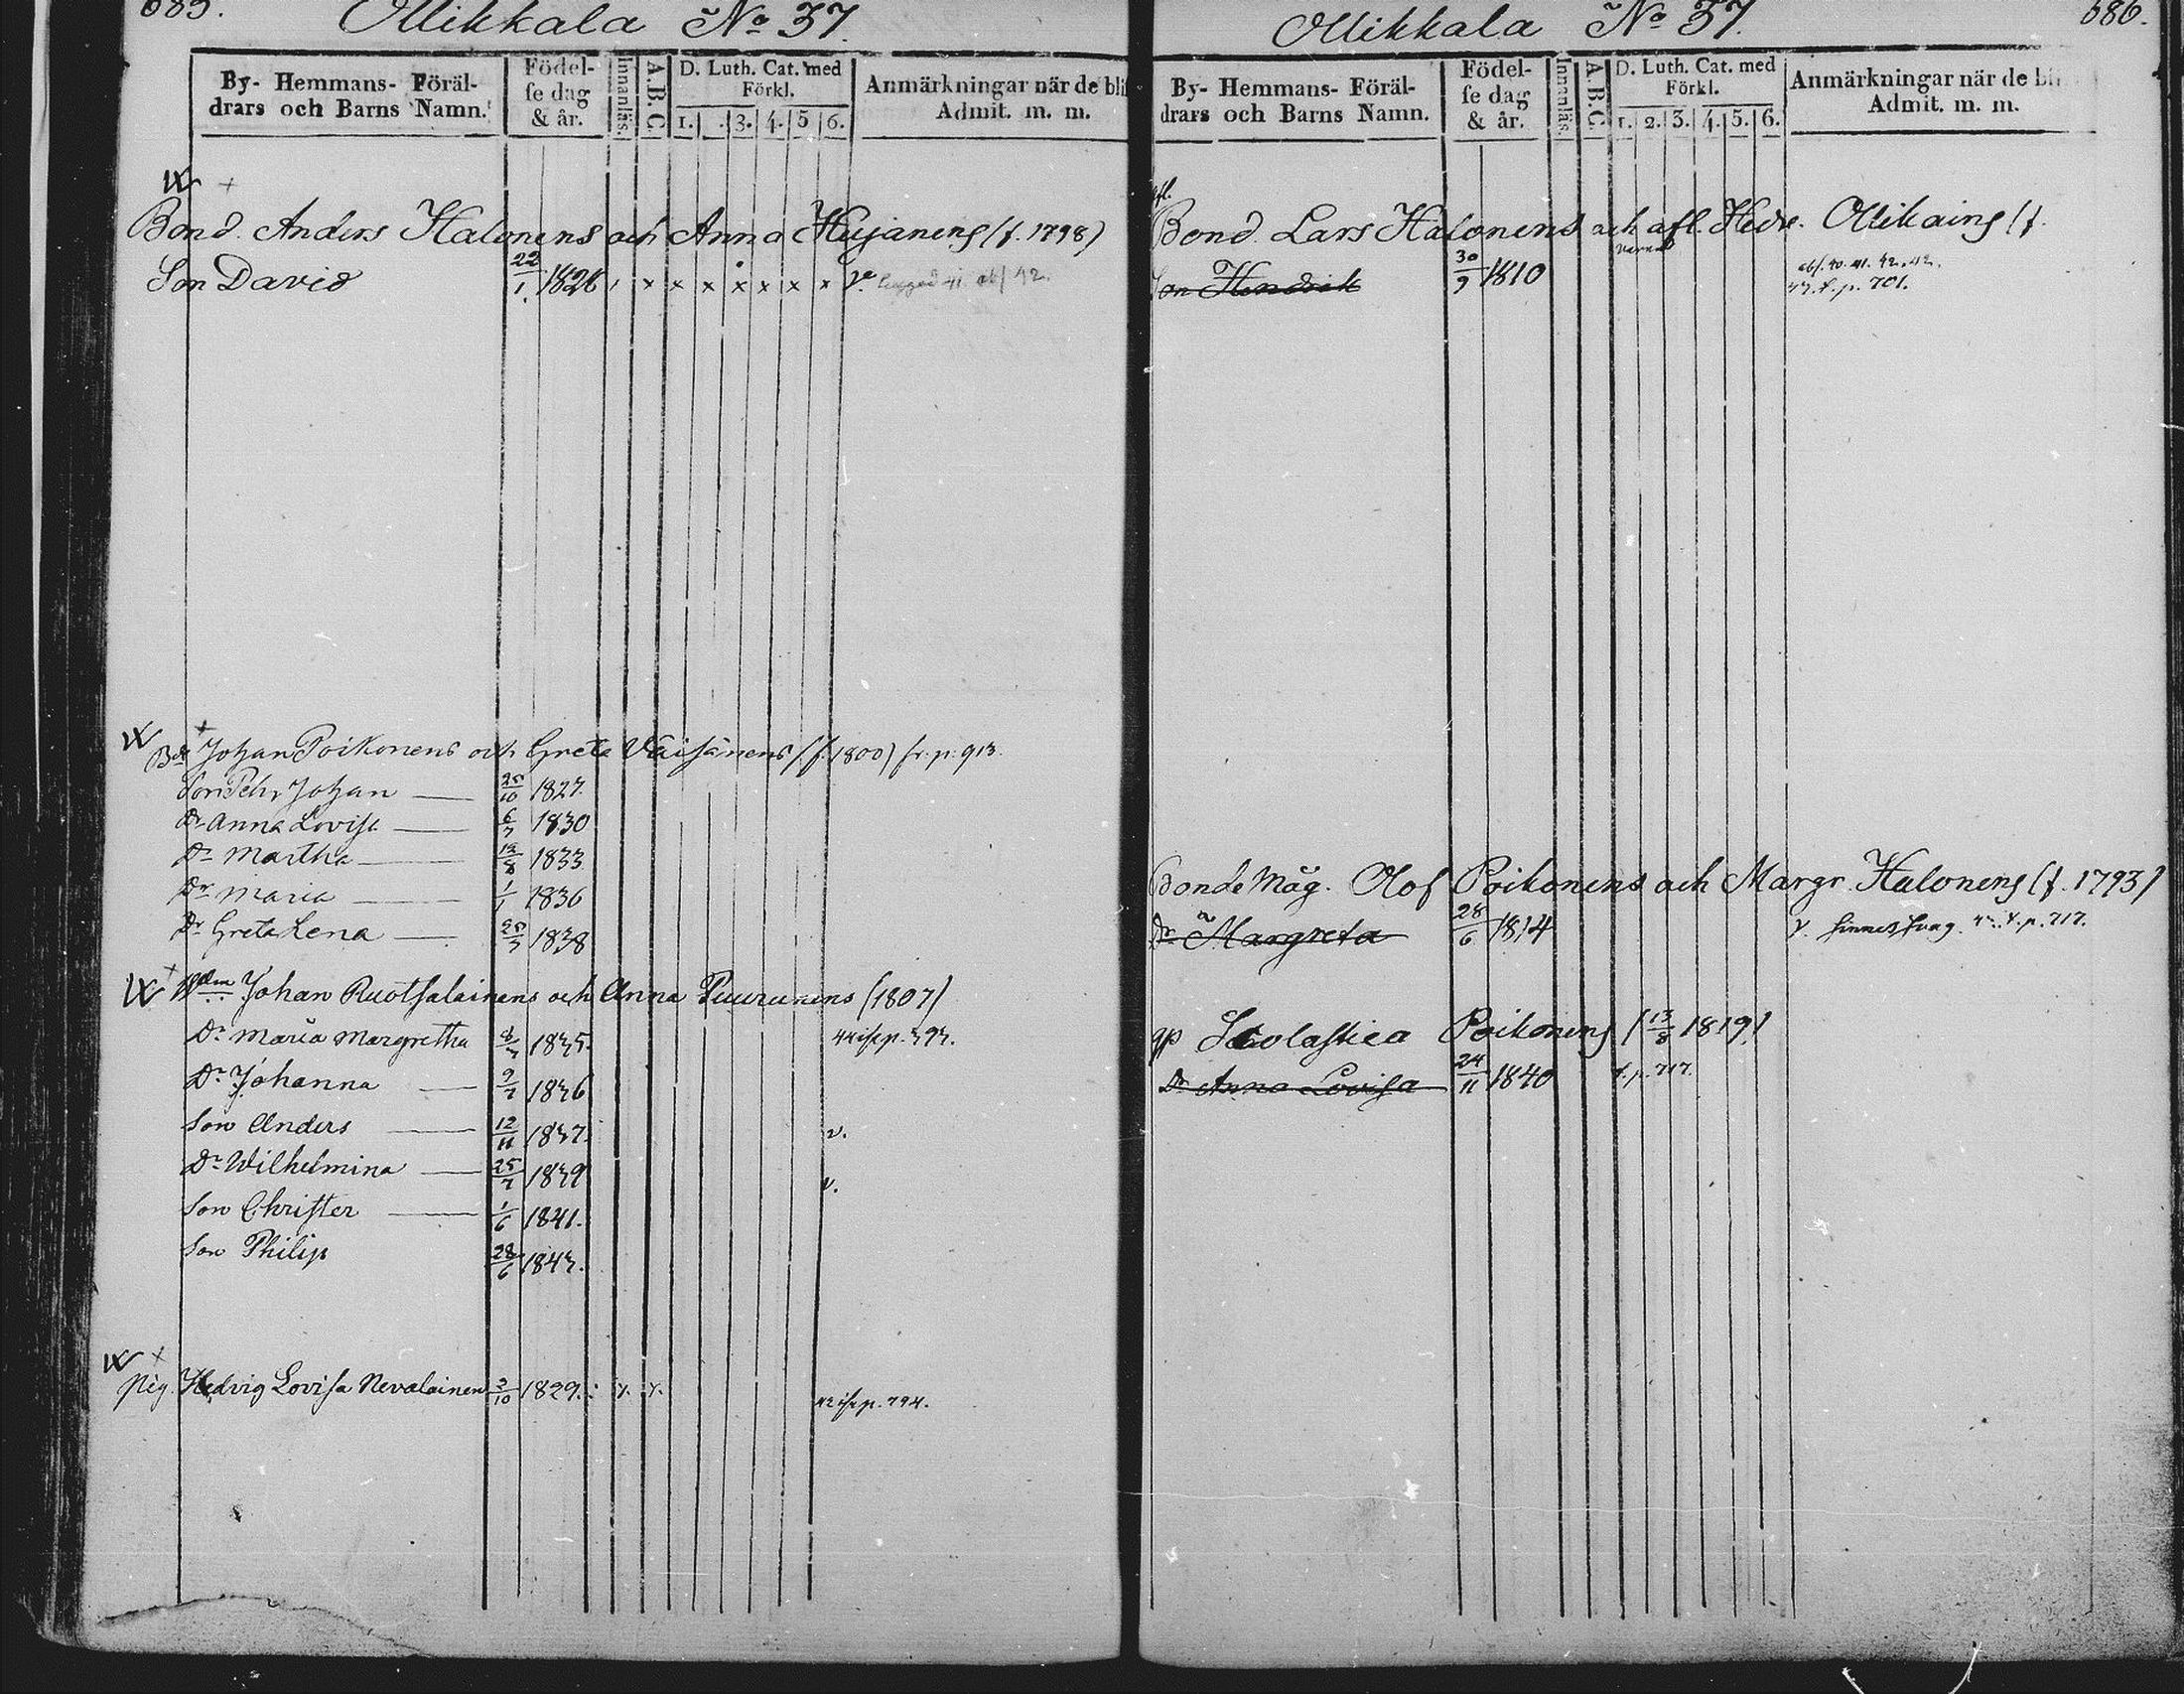 685.
Ollikkala No 37.
By- Hemmans- Föräl-
drars och Barns Namn.
Födel-
se dag
& år.
Innanläs.
A.B.C
D. Luth. Cat. med
Förkl.
1. . 3. 4. 5 6.
Anmärkningar när de bli
Admit. m. m.
Bond. Anders Halonens och Anna Heijanens (f. 1798)
Son David 22/1 1826 x x x x x x x
Bd Johan Poikonens och Greta Väisänens (f. 1800) fr. p. 913.
Son Pehr Johan 25/10 1827.
Dr Anna Lovisa 6/7 1830
Dr Martha 12/8 1833
Dr Maria 1/1 1836
Dr Greta Lena 25/7 1838
Johan Ruotsalainens och Anna Puurunens (1807)
Dr Maria Margretha 1835. 44 p. 393.
Dr Johanna 9/7 1836
Son Anders 12/11 1837. v.
Dr Wilhelmina 25/7 1839 v.
Son Christer 1/6 1841.
Son Philip 28/6 1843.
pig. Hedvig Lovisa Nevalainen 3/10 1829. 42 p. 794.
686.
Ollikkala No 37.
By- Hemmans- Föräl-
drars och Barns Namn.
Födel-
se dag
& år.
Innanläs.
A.B.C.
D. Luth. Cat. med
Förkl.
1. 2. 3. 4. 5. 6.
Anmärkningar när de bli
Admit. m. m.
afl.
Bond. Lars Halonens och afl. Hedv. Ollikains (f.
Son Hendrik 30/9 1810 abs. 40. 41. 42. 42.
43. t. p. 701.
Bonde Måg. Olof Poikonens och Margr. Halonens (f. 1793)
Dr Margreta 28/6 1814 v. sinnessvag. t. p. 717.
qp Scolastica Poikonens (13/8 1819)
Dr Anna Lovisa 24/11 1840 t. p. 717.